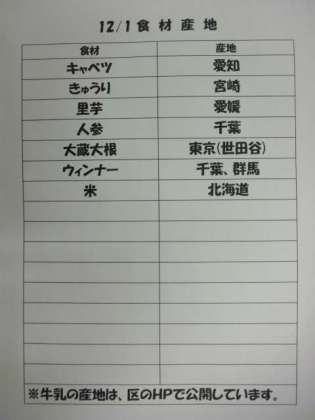 12/1 食材産地
食材 産地
キャベツ 愛知
きゅうり 宮崎
里芋 愛媛
人参 千葉
大蔵大根 東京(世田谷)
ウィンナー 千葉、群馬
米 北海道
※牛乳の産地は、区のHPで公開しています。